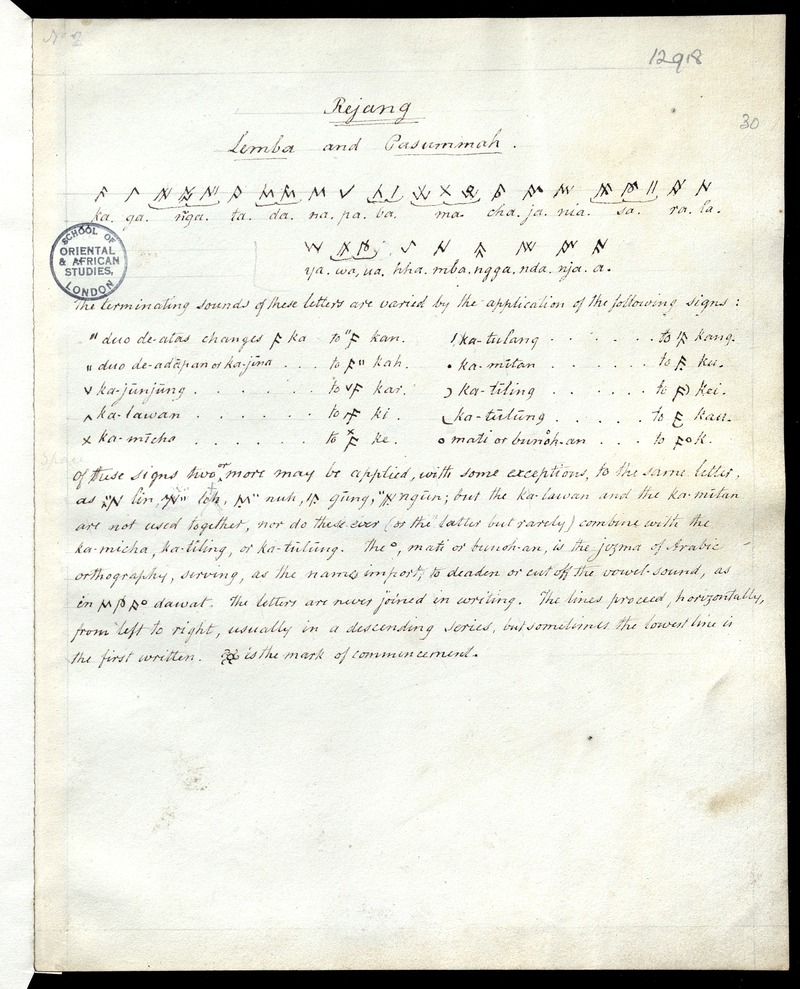 No 2
12918
30
Rejang
Lemba and Pasummah.
ka. ga. n̄ga. ta. da. na. pa. ba. ma. cha. ja. nia. sa. ra. la.
ya. wa, ua. hha. mba. ngga. nda. nja. a.
SCHOOL OF
ORIENTAL
& AFRICAN
STUDIES,
LONDON
The terminating sounds of these letters are varied by the application of the following signs:
" duo de-atas changes ꤰ ka to "ꤰ kan. / ka-tulang . . . . . . to /ꤰ kang.
" duo de-adāpan or ka-jīna . . . to ꤰ" kah. • ka-mītan . . . . . . to ꤰ ku.
v ka-jūnjūng . . . . . . to vꤰ kar. ɔ ka-tīling . . . . . . to ꤰ) kei.
ʌ ka-lawan . . . . . . to ꤰ ki. ka-tūlūng . . . . . . to ꤰ kau.
x ka-mīcha . . . . . . to ꤰ ke. o mati or bunōh-an . . . to ꤰo k.
Space
Of these signs two or more may be applied, with some exceptions, to the same letter,
as līn, loh, nuh, gūng, ngūn; but the ka-lawan and the ka-mītan
are not used together, nor do these ever (or the latter but rarely) combine with the
ka-micha, ka-tīling, or ka-tūlūng. The o, mati or bunoh-an, is the jezma of Arabic
orthography, serving, as the names import, to deaden or cut off the vowel-sound, as
in dawat. The letters are never joined in writing. The lines proceed, horizontally,
from left to right, usually in a descending series, but sometimes the lower line is
the first written. is the mark of commencement.